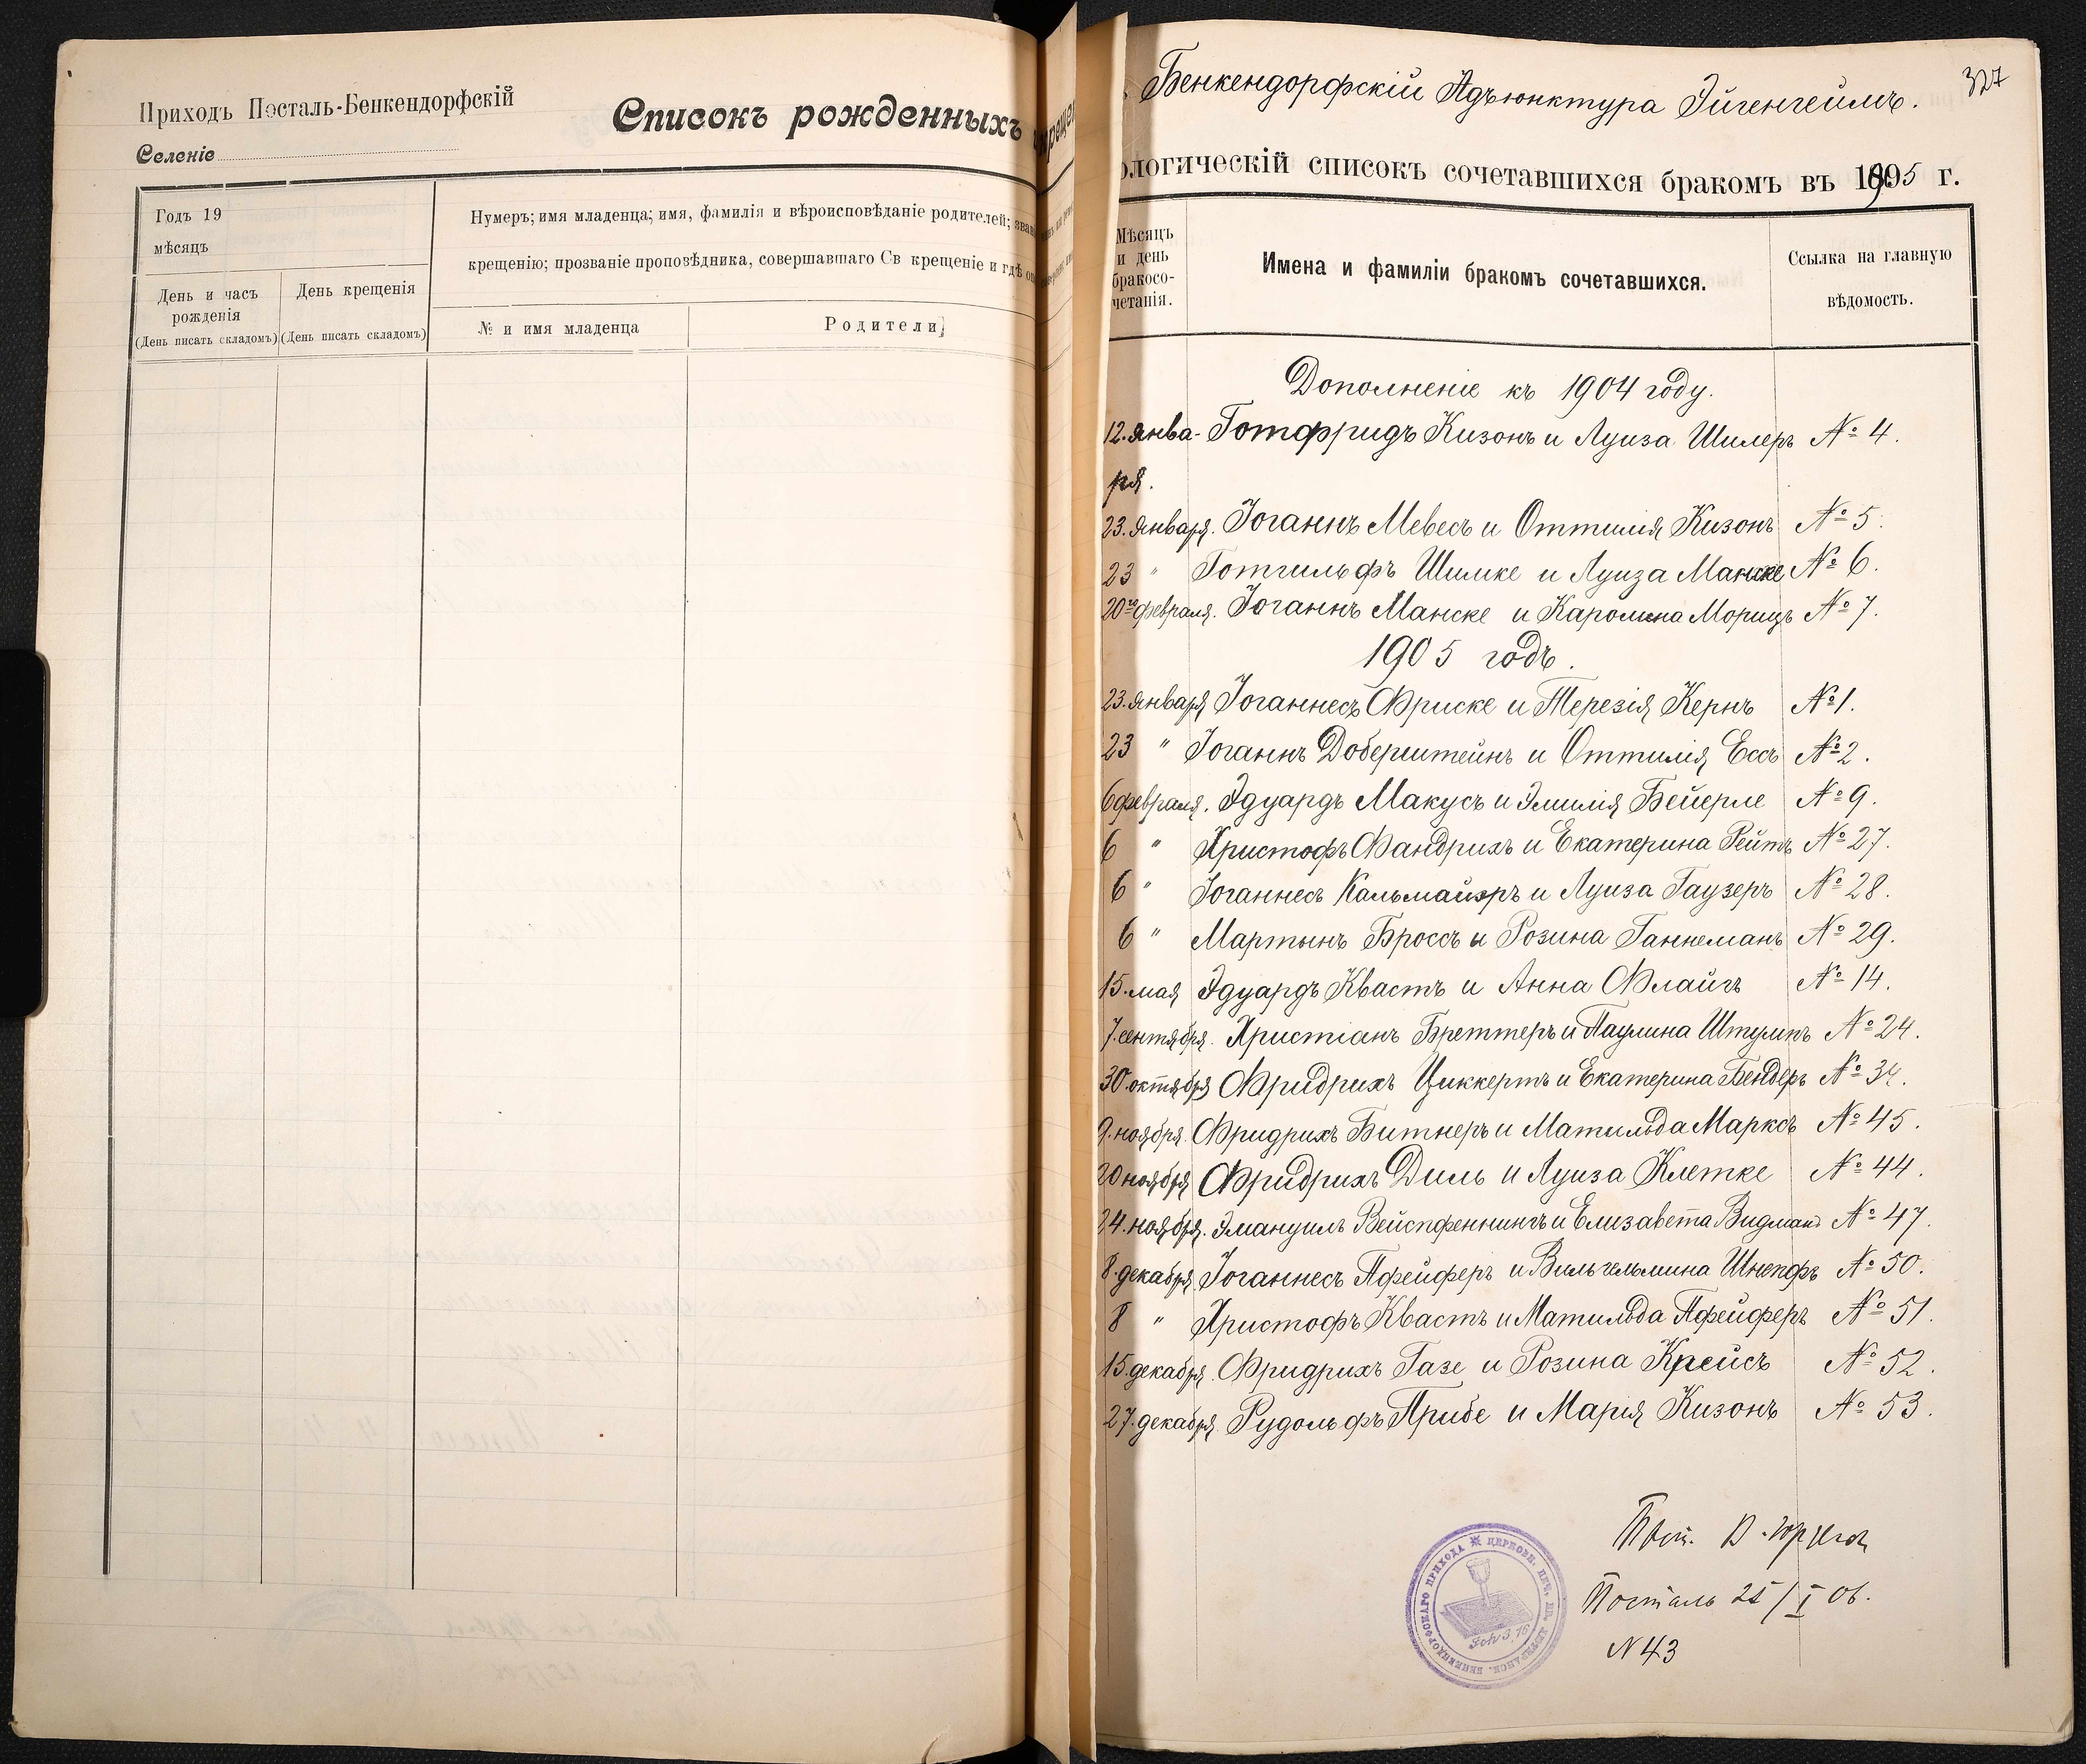 Приходъ Посталь-Бенкендорфскій
Селеніе
Списокъ рожденныхъ
Годъ 19
мѣсяцъ
День и часъ рожденія
(День писать складомъ)
День крещенія
(День писать складомъ)
Нумеръ; имя младенца; имя, фамилія и вѣроисповѣданіе родителей;
крещенію; прозваніе проповѣдника, совершавшаго Св крещеніе и гдѣ
№ и имя младенца
Родители
327
Бенкендорфскій Адъюнктура Эйгенгеймъ.
ологическій списокъ сочетавшихся бракомъ въ 1905 г.
Мѣсяцъ
и день
бракосо-
четанія.
Имена и фамиліи бракомъ сочетавшихся.
Ссылка на главную
вѣдомость.
Дополненіе къ 1904 году.
12. янва- Готфридъ Кизонъ и Луиза Шилеръ № 4.
ря.
23. января. Іоганнъ Мевесъ и Оттилія Кизонъ № 5.
23 " Готгильфъ Шилке и Луиза Манске № 6.
20го февраля. Іоганнъ Манске и Каролина Морицъ № 7.
1905 годъ.
23. января Іоганнесъ Фриске и Терезія Кернъ № 1.
23 " Іоганнъ Доберштейнъ и Оттилія Ессъ № 2.
6 февраля. Эдуардъ Макусъ и Эмилія Бейерле № 9.
6 " Христофъ Фандрихъ и Екатерина Рейтъ № 27.
6 " Іоганнесъ Кальмайэръ и Луиза Гаузеръ № 28.
6 " Мартынъ Броссъ и Розина Ганнеманъ № 29.
15. мая Эдуардъ Квастъ и Анна Флайгъ № 14.
7. сентября. Христіанъ Бреттеръ и Паулина Штумпъ № 24.
30. октября Фридрихъ Циккертъ и Екатерина Бендеръ № 34.
9. ноября. Фридрихъ Битнеръ и Матильда Марксъ № 45.
20 ноября Фридрихъ Диль и Луиза Клетке № 44.
24. ноября. Эмануилъ Вейспфеннингъ и Елизавета Видманъ № 47.
8. декабря Іоганнесъ Пфейферъ и Вильгельмина Шнепфъ № 50.
8 " Христофъ Квастъ и Матильда Пфейферъ № 51.
15 декабря. Фридрихъ Газе и Розина Крейсъ № 52.
27. декабря. Рудольфъ Прибе и Марія Кизонъ № 53.
Посталь 25/I 06.
N 43
ЦЕРКОВН. ПЕЧ. ЛЮТЕРАНСК. БЕНКЕНДОРФСКАГО ПРИХОДА
Joh 3,16